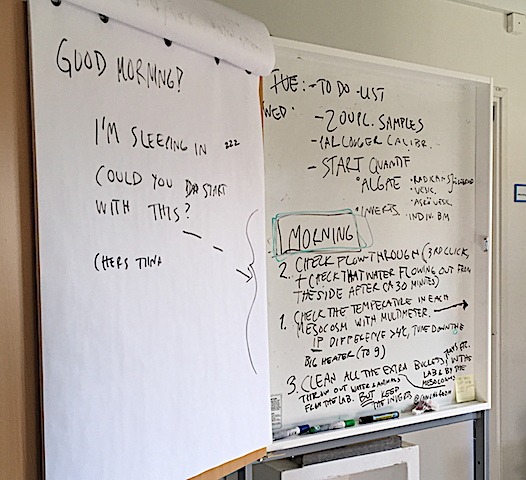 GOOD MORNING!
I'M SLEEPING IN zzz
COULD YOU START
WITH THIS?
TUE: - TO DO - LIST
WED.
- ZOOPL. SAMPLES
- CAL LOGGER CALIBR.
- START QUANTIF
• ALGAE
• INVERTS. • INDIV. BM
MORNING
2. CHECK FLOW-THROUGH (3RD CLICK,
+ CHECK THAT WATER FLOWING OUT FROM
THE SIDE AFTER CA 30 MINUTES)
1. CHECK THE TEMPERATURE IN EACH
MESOCOSM WITH MULTIMETER.
IF DIFFERENCE >4°C, TUNE DOWN THE
BIG HEATER (TO 9)
3. CLEAN ALL THE EXTRA BUCKETS, IN THE
LAB & BY THE
MESOCOSMS
THROW OUT WATER & ANIMALS
FROM THE LAB. BUT KEEP